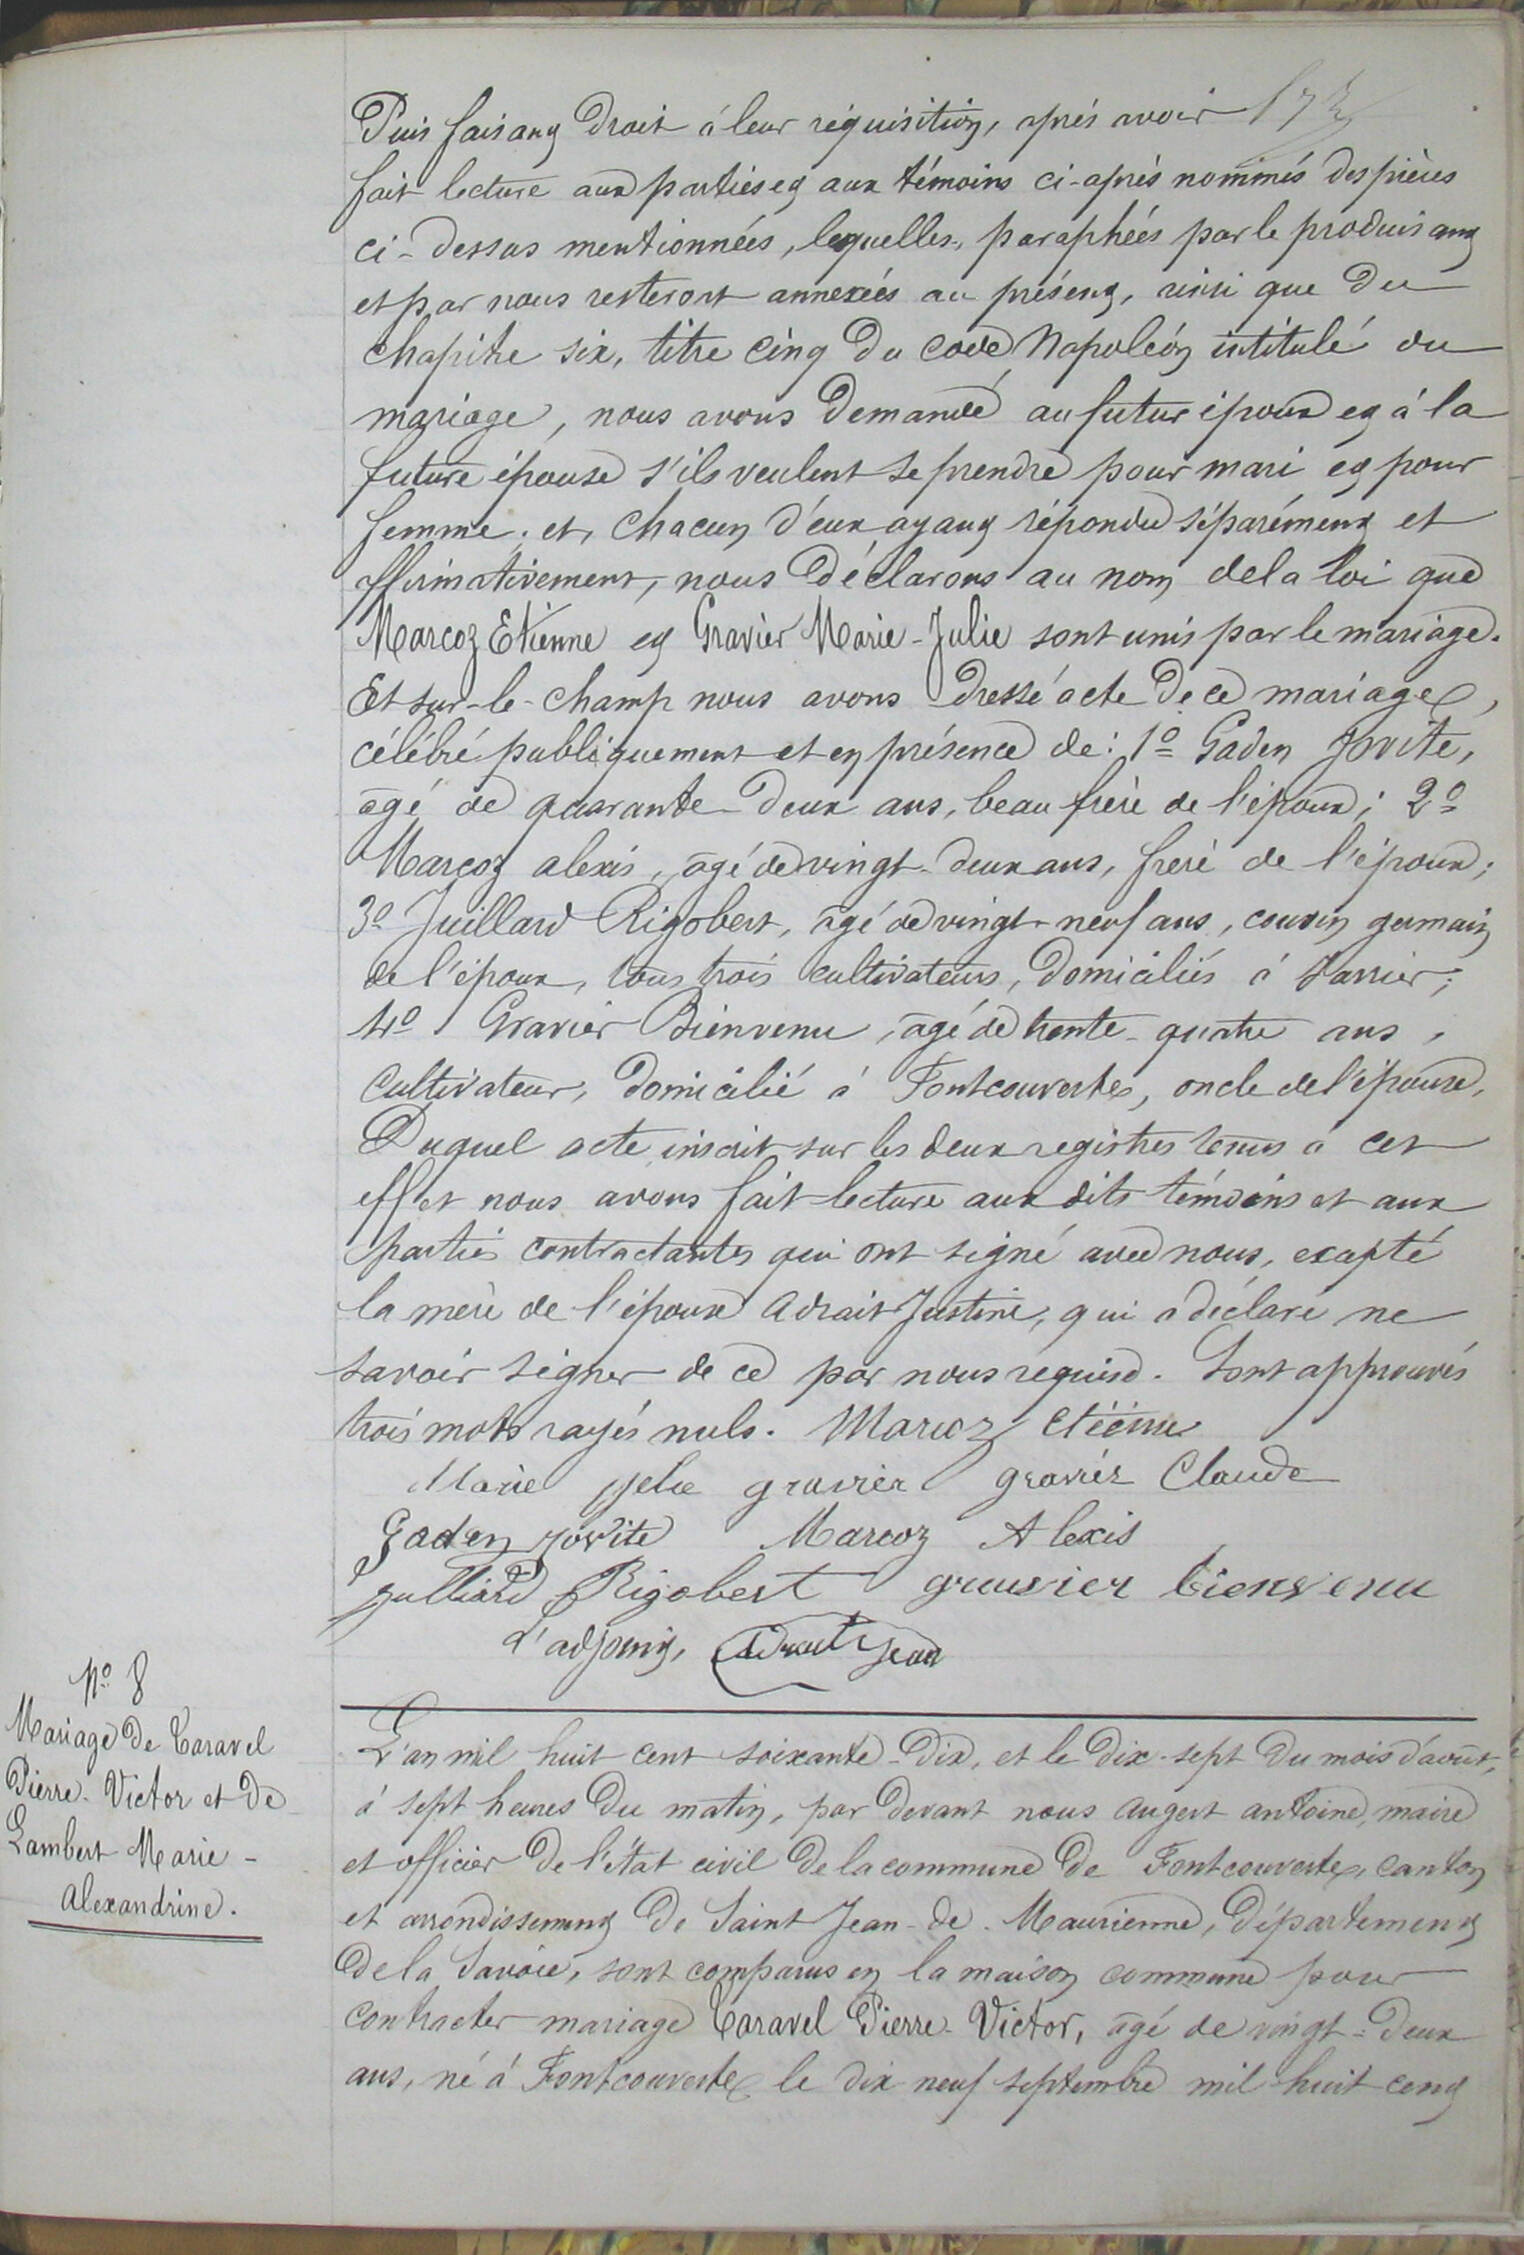 173
Puis faisant droit á leur réquisition, aprés avoir
fait lecture aux parties et aux témoins ci-aprés nommés des pièces
ci-dessus mentionnées, lesquelles, paraphées par le produisant
et par nous resteront annexées au présent, ainsi que du
chapitre six, titre cinq du code Napoléon intitulé du
mariage, nous avons demandé au futur époux et á la
future épouse s'ils veulent se prendre pour mari et pour
femme; et, chacun d'eux ayant répondu séparément et
affirmativement, nous déclarons au nom de la loi que
Marcoz Etienne et Gravier Marie-Julie sont unis par le mariage.
Et sur-le-champ nous avons dressé acte de ce mariage,
célébré publiquement et en présence de: 1º Gaden Jovite,
agé de quarante-deux ans, beau frère de l'époux; 2º
Marcoz alexis, agé de vingt-deux ans, frère de l'époux;
3º Juillard Rigobert, agé de vingt-neuf ans, cousin germain
de l'époux, tous trois cultivateurs, domiciliés á Jarrier;
4º Gravier Bienvenu, agé de trente-quatre ans,
cultivateur, domicilié á Fontcouverte, oncle de l'épouse.
Duquel acte inscrit sur les deux registres tenus á cet
effet nous avons fait lecture aux dits témoins et aux
parties contractantes qui ont signé avec nous, excepté
la mère de l'époux Adrait Justine, qui a déclaré ne
savoir signer de ce par nous requise. Sont approuvés
trois mots rayés nuls. Marcoz Etienne
Marie Julie gravier gravier Claude
Gaden Jovite Marcoz Alexis
Julliard Rigobert gravier bienvenu
L'adjoint, Adrait Jean
Nº 8
Mariage de Caravel
Pierre-Victor et de
Lambert Marie-
Alexandrine.
L'an mil huit cent soixante-dix, et le dix-sept du mois d'août,
á sept heures du matin, par devant nous Augert antoine, maire
et officier de l'état civil de la commune de Fontcouverte, canton
et arrondissement de Saint Jean-de-Maurienne, département
de la Savoie, sont comparus en la maison commune pour
contracter mariage Caravel Pierre-Victor, agé de vingt-deux
ans, né á Fontcouverte le dix neuf septembre mil huit cent